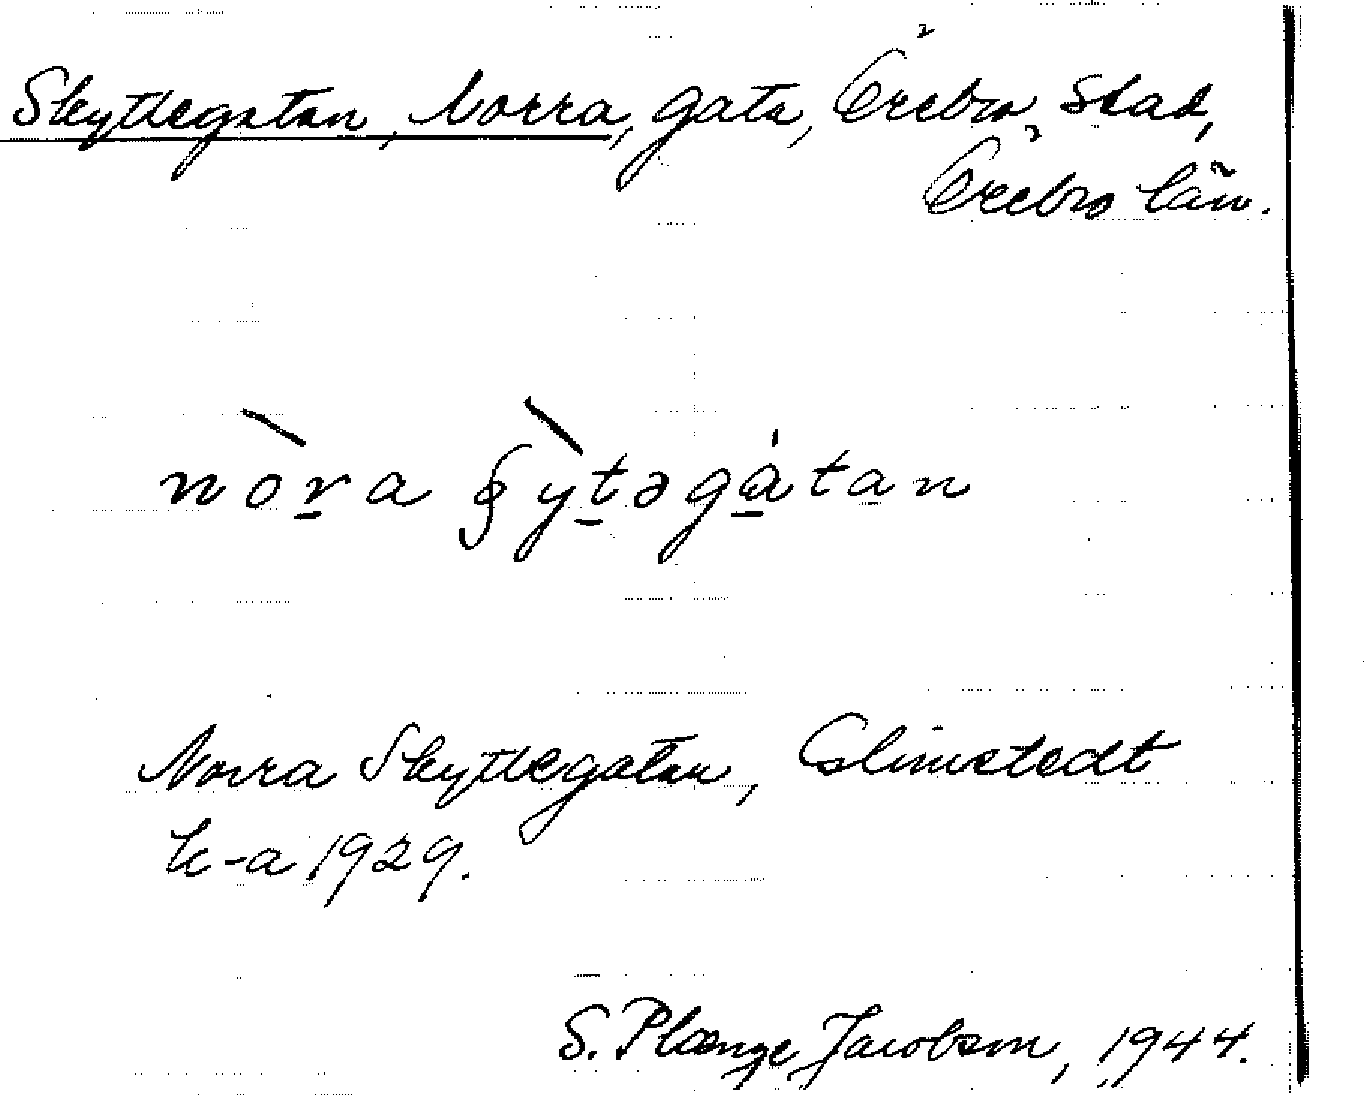 Skyttegatan, Norra, gata, Örebro stad,
Örebro län.
nò̱ra ʂỳṯəgà̱tan
Norra Skyttegatan, Glimstedt
k-a 1929.
S. Plænge Jacobson, 1944.